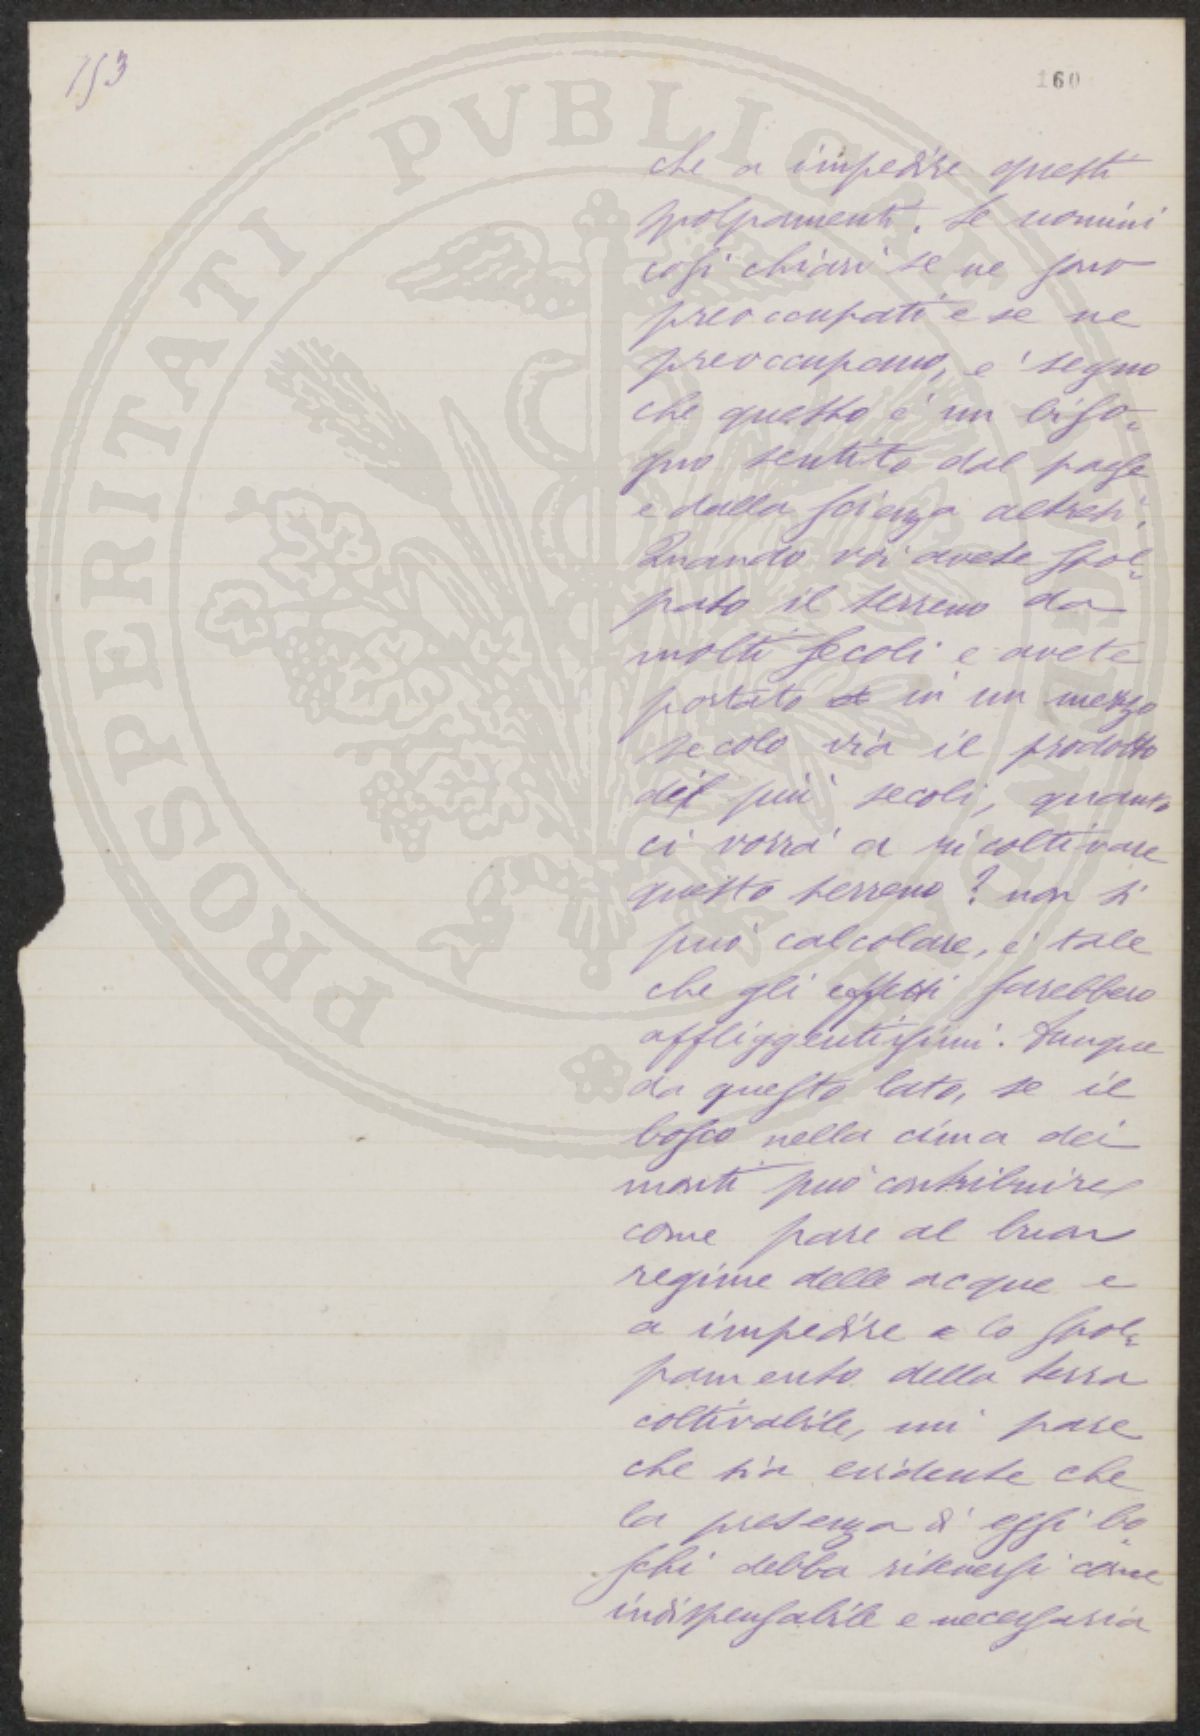 153
160
che a impedire questi
spolpamenti. Se uomini
così chiari se ne sono
preoccupati e se ne
preoccupano, e' segno
che questo è un biso=
gno sentito dal paese
e dalla scienza altresì.
Quando voi avete spol=
pato il terreno da
molti secoli e avete
portato in un mezzo
secolo via il prodotto
di più secoli, quanto
ci vorrà a ricoltivare
questo terreno? non si
può calcolare, è tale
che gli effetti sarebbero
affliggentissimi. Dunque
da questo lato, se il
bosco nella cima dei
monti può contribuire
come pare al buon
regime delle acque e
a impedire e lo spol=
pamento della terra
coltivabile, mi pare
che sia evidente che
la presenza di essi bo=
schi debba ritenersi come
indispensabile e necessaria
PROSPERITATI PVBLICAE